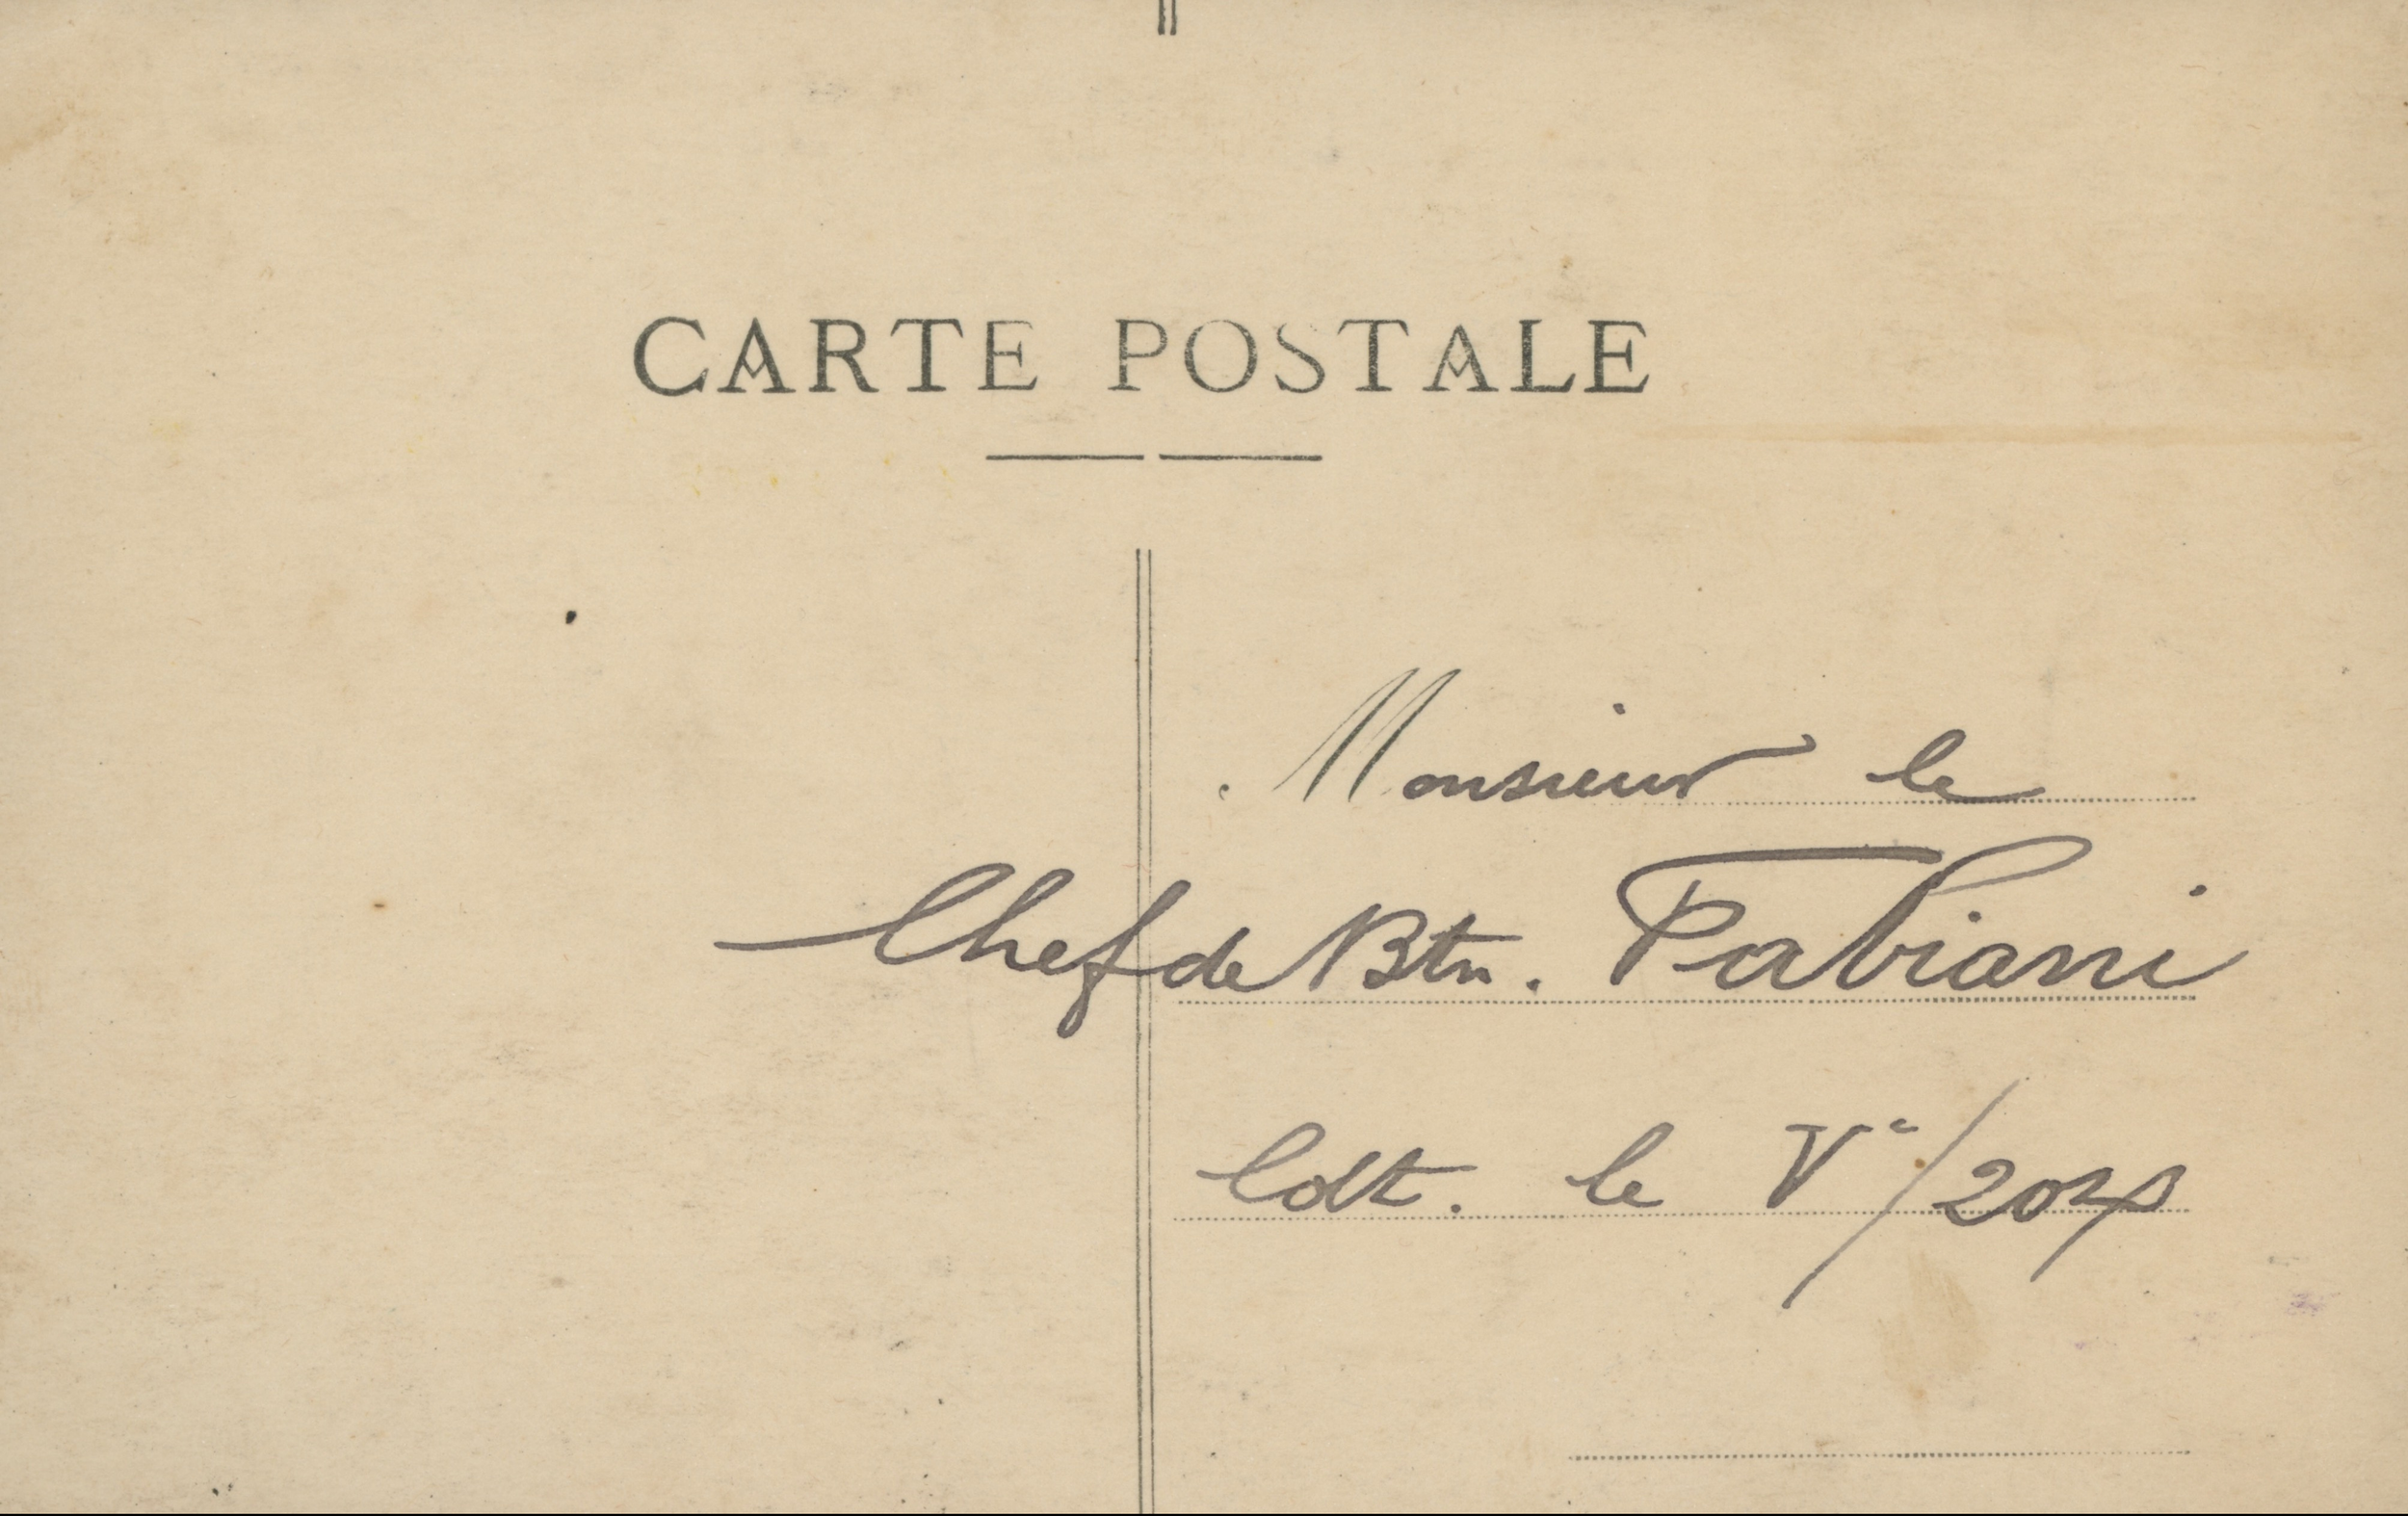 CARTE POSTALE
Monsieur le
Chef de Btn. Fabiani
Cdt. le Ve/204